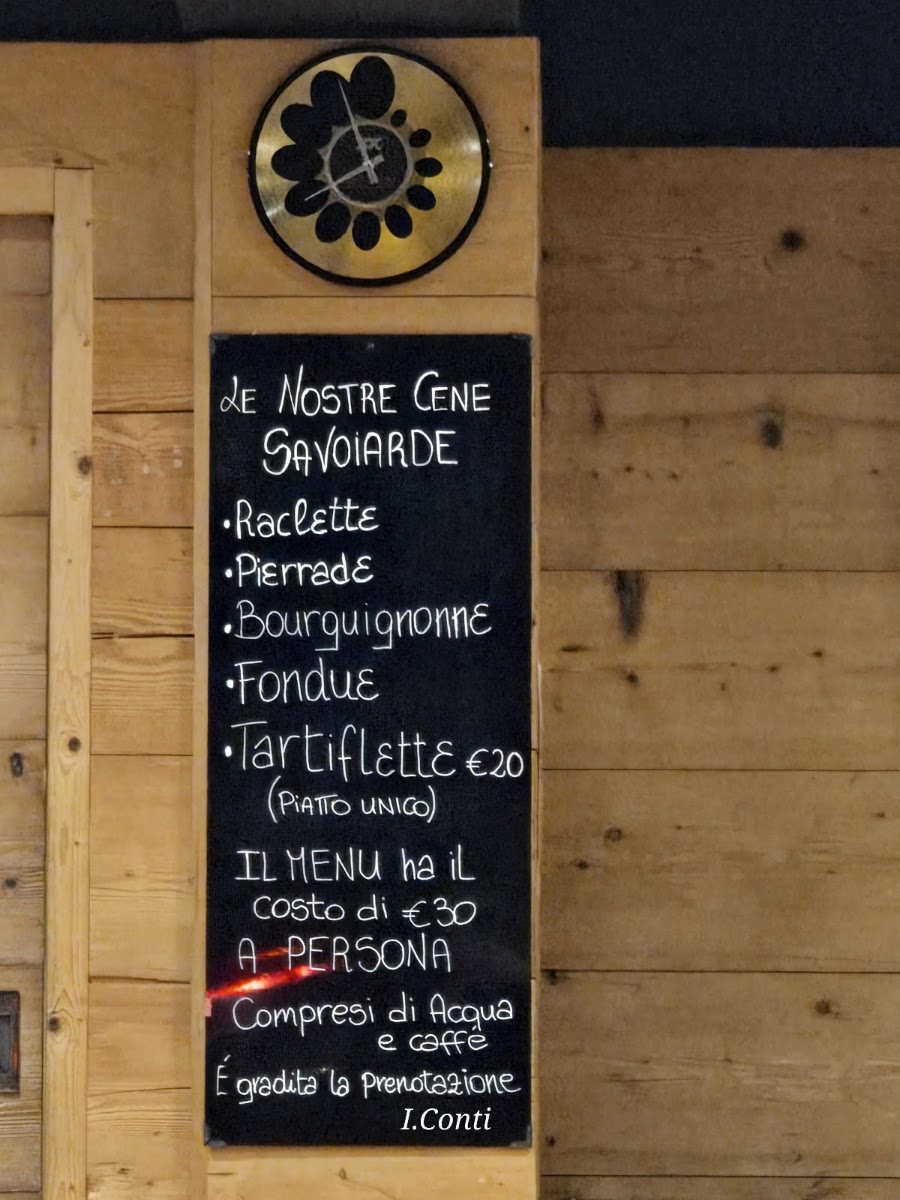 Le Nostre Cene
Savoiarde
•Raclette
•Pierrade
•Bourguignonne
•Fondue
•Tartiflette €20
(Piatto unico)
Il MENU ha il
costo di €30
A PERSONA
Compresi di Acqua
e caffé
É gradita la prenotazione
I.Conti